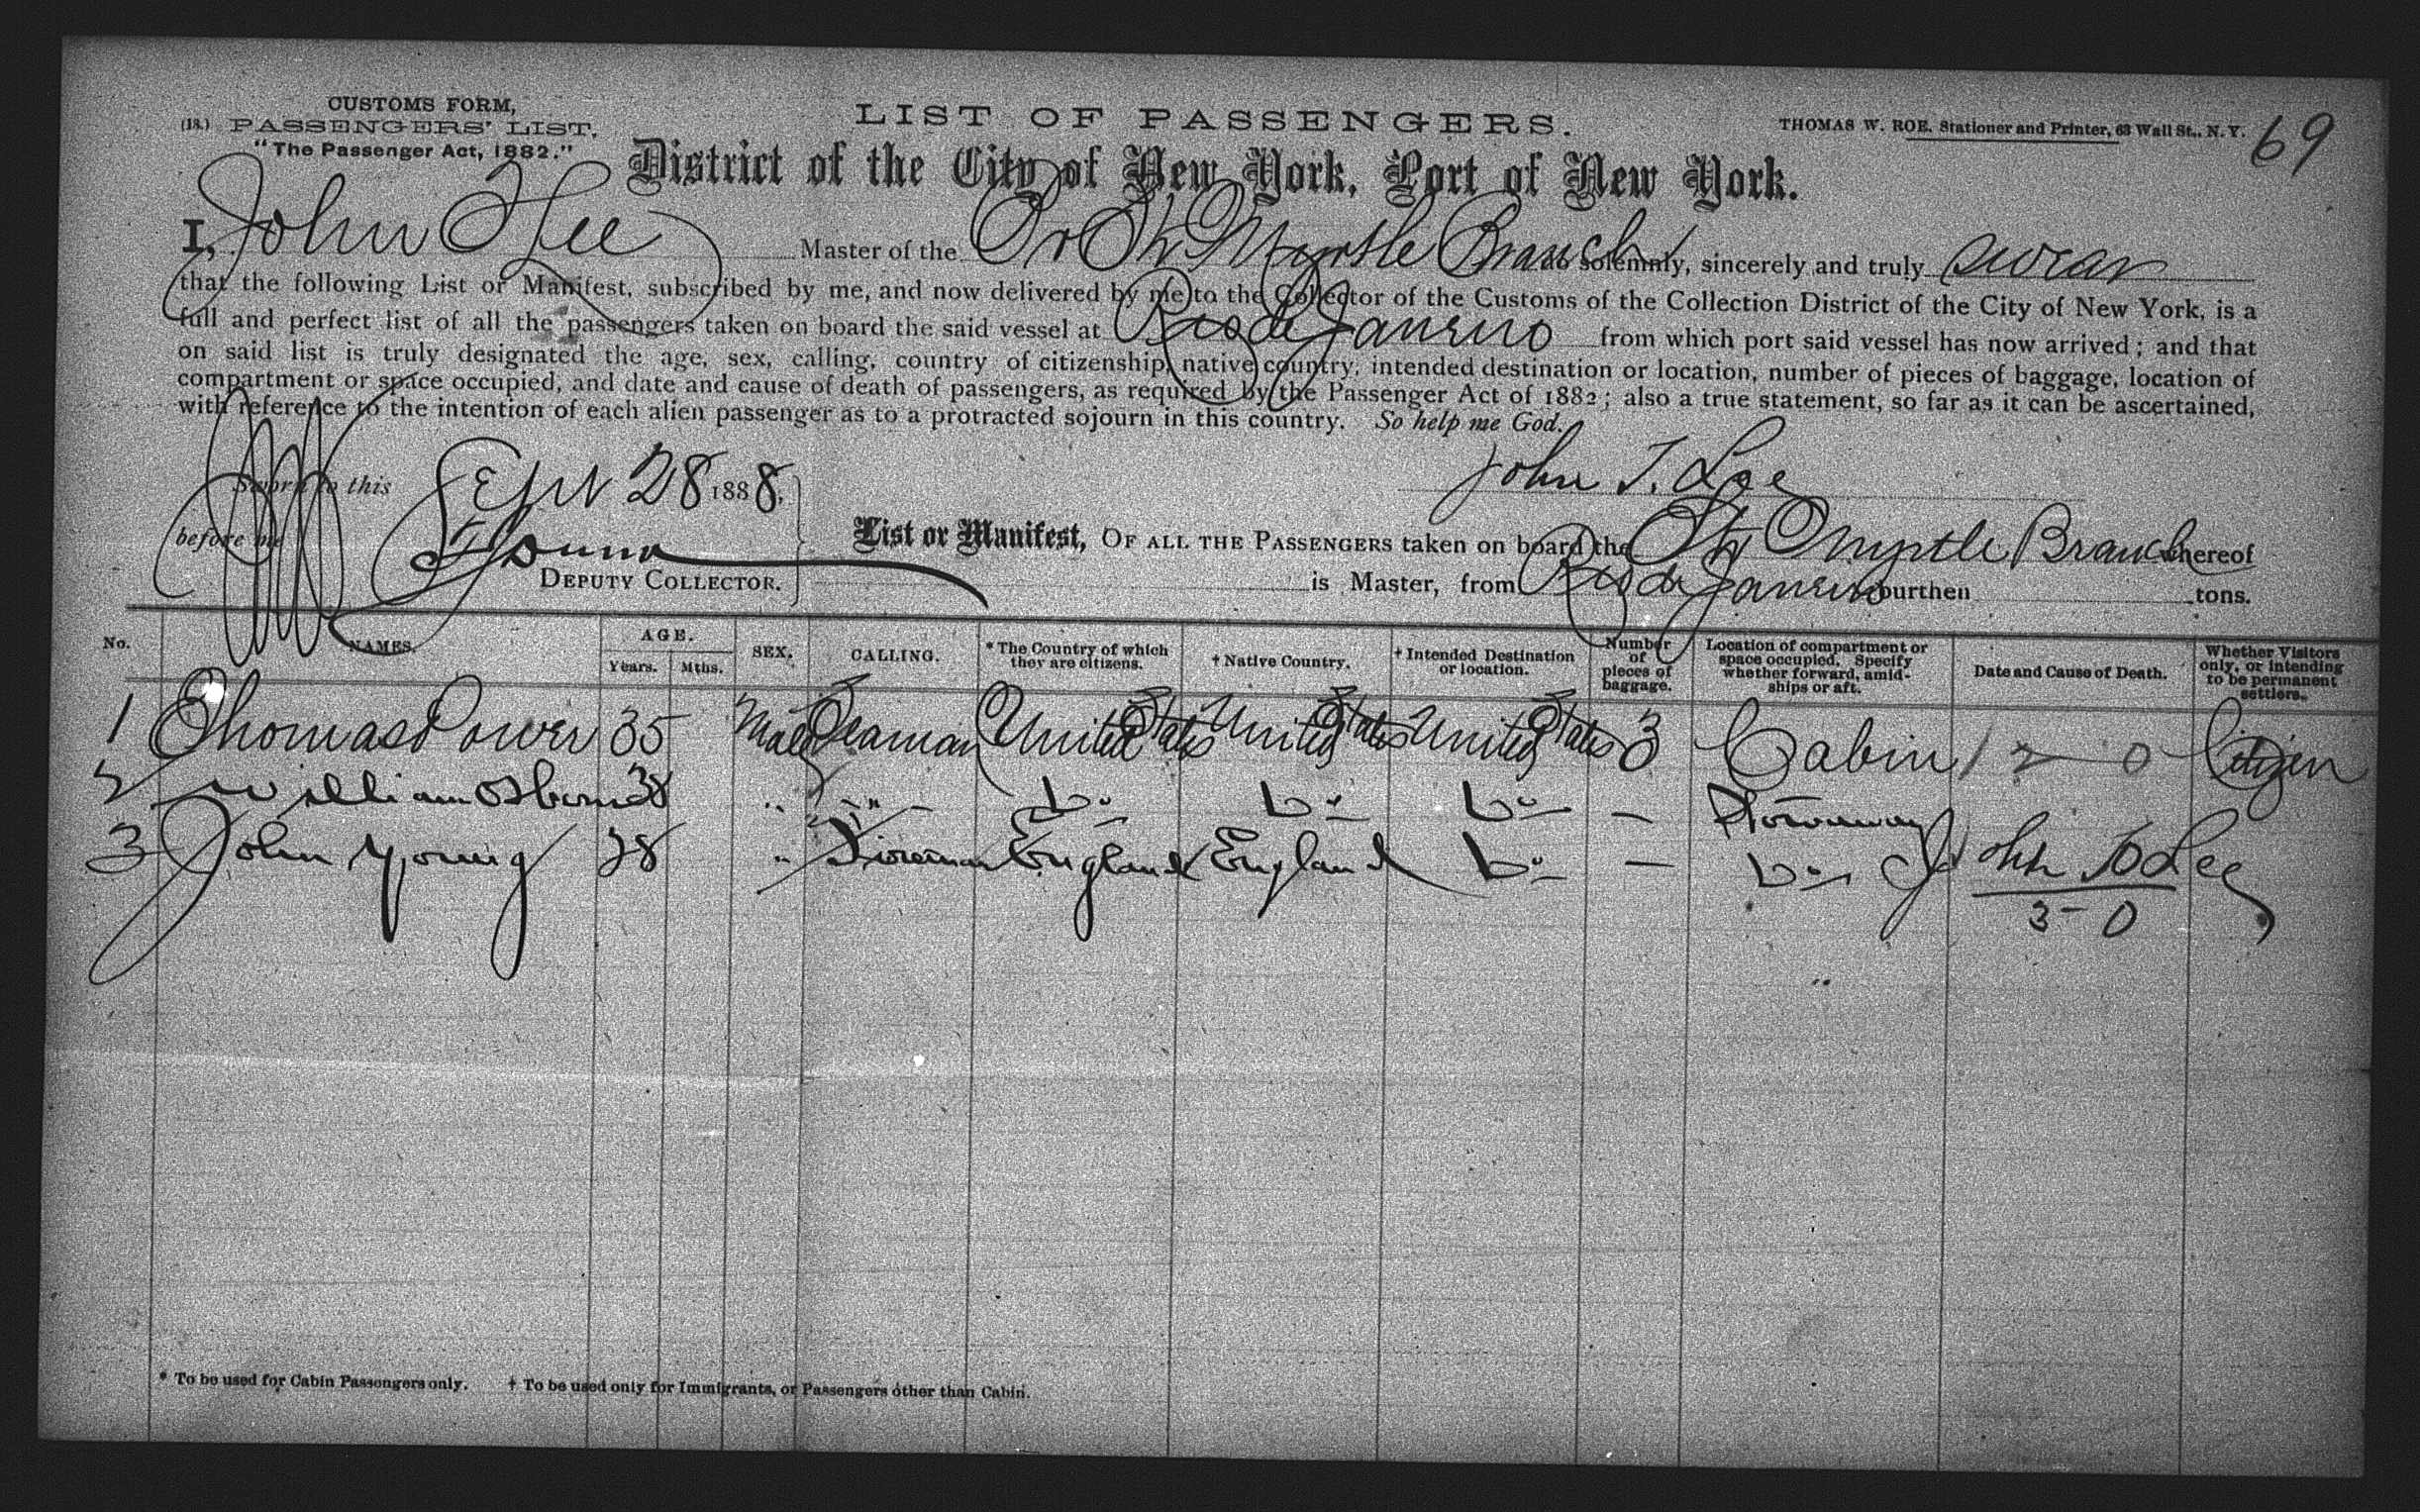 CUSTOMS FORM,
(18.) PASSENGERS' LIST.
"The Passenger Act, 1882."
LIST OF PASSENGERS.
THOMAS W. ROE, Stationer and Printer, 63 Wall St., N. Y.
69
District of the City of New York, Port of New York.
I, John T Lee Master of the Br Str Myrtle Branch do solemnly, sincerely and truly swear
that the following List or Manifest, subscribed by me, and now delivered by me to the Collector of the Customs of the Collection District of the City of New York, is a
full and perfect list of all the passengers taken on board the said vessel at Rio de Janeiro from which port said vessel has now arrived; and that
on said list is truly designated the age, sex, calling, country of citizenship, native country, intended destination or location, number of pieces of baggage, location of
compartment or space occupied, and date and cause of death of passengers, as required by the Passenger Act of 1882; also a true statement, so far as it can be ascertained,
with reference to the intention of each alien passenger as to a protracted sojourn in this country. So help me God.
John T. Lee
Sworn to this Sept 28 1888.
before me
DEPUTY COLLECTOR.
List or Manifest, OF ALL THE PASSENGERS taken on board the Str Myrtle Branch whereof
is Master, from Rio de Janeiro burthen tons.
No. NAMES. AGE. Years. Mths. SEX. CALLING. * The Country of which they are citizens. † Native Country. † Intended Destination or location. Number of pieces of baggage. Location of compartment or space occupied. Specify whether forward, amidships or aft. Date and Cause of Death. Whether Visitors only, or intending to be permanent settlers.
1 Thomas Power 35 Male Seaman United States United States United States 3 Cabin 1 2 - 0 Citizen
2 William Osborn 38 " " Do Do Do — Stowaway
3 John Young 28 " Fireman England England Do — Do John T Lee
3 - 0
* To be used for Cabin Passengers only. † To be used only for Immigrants, or Passengers other than Cabin.